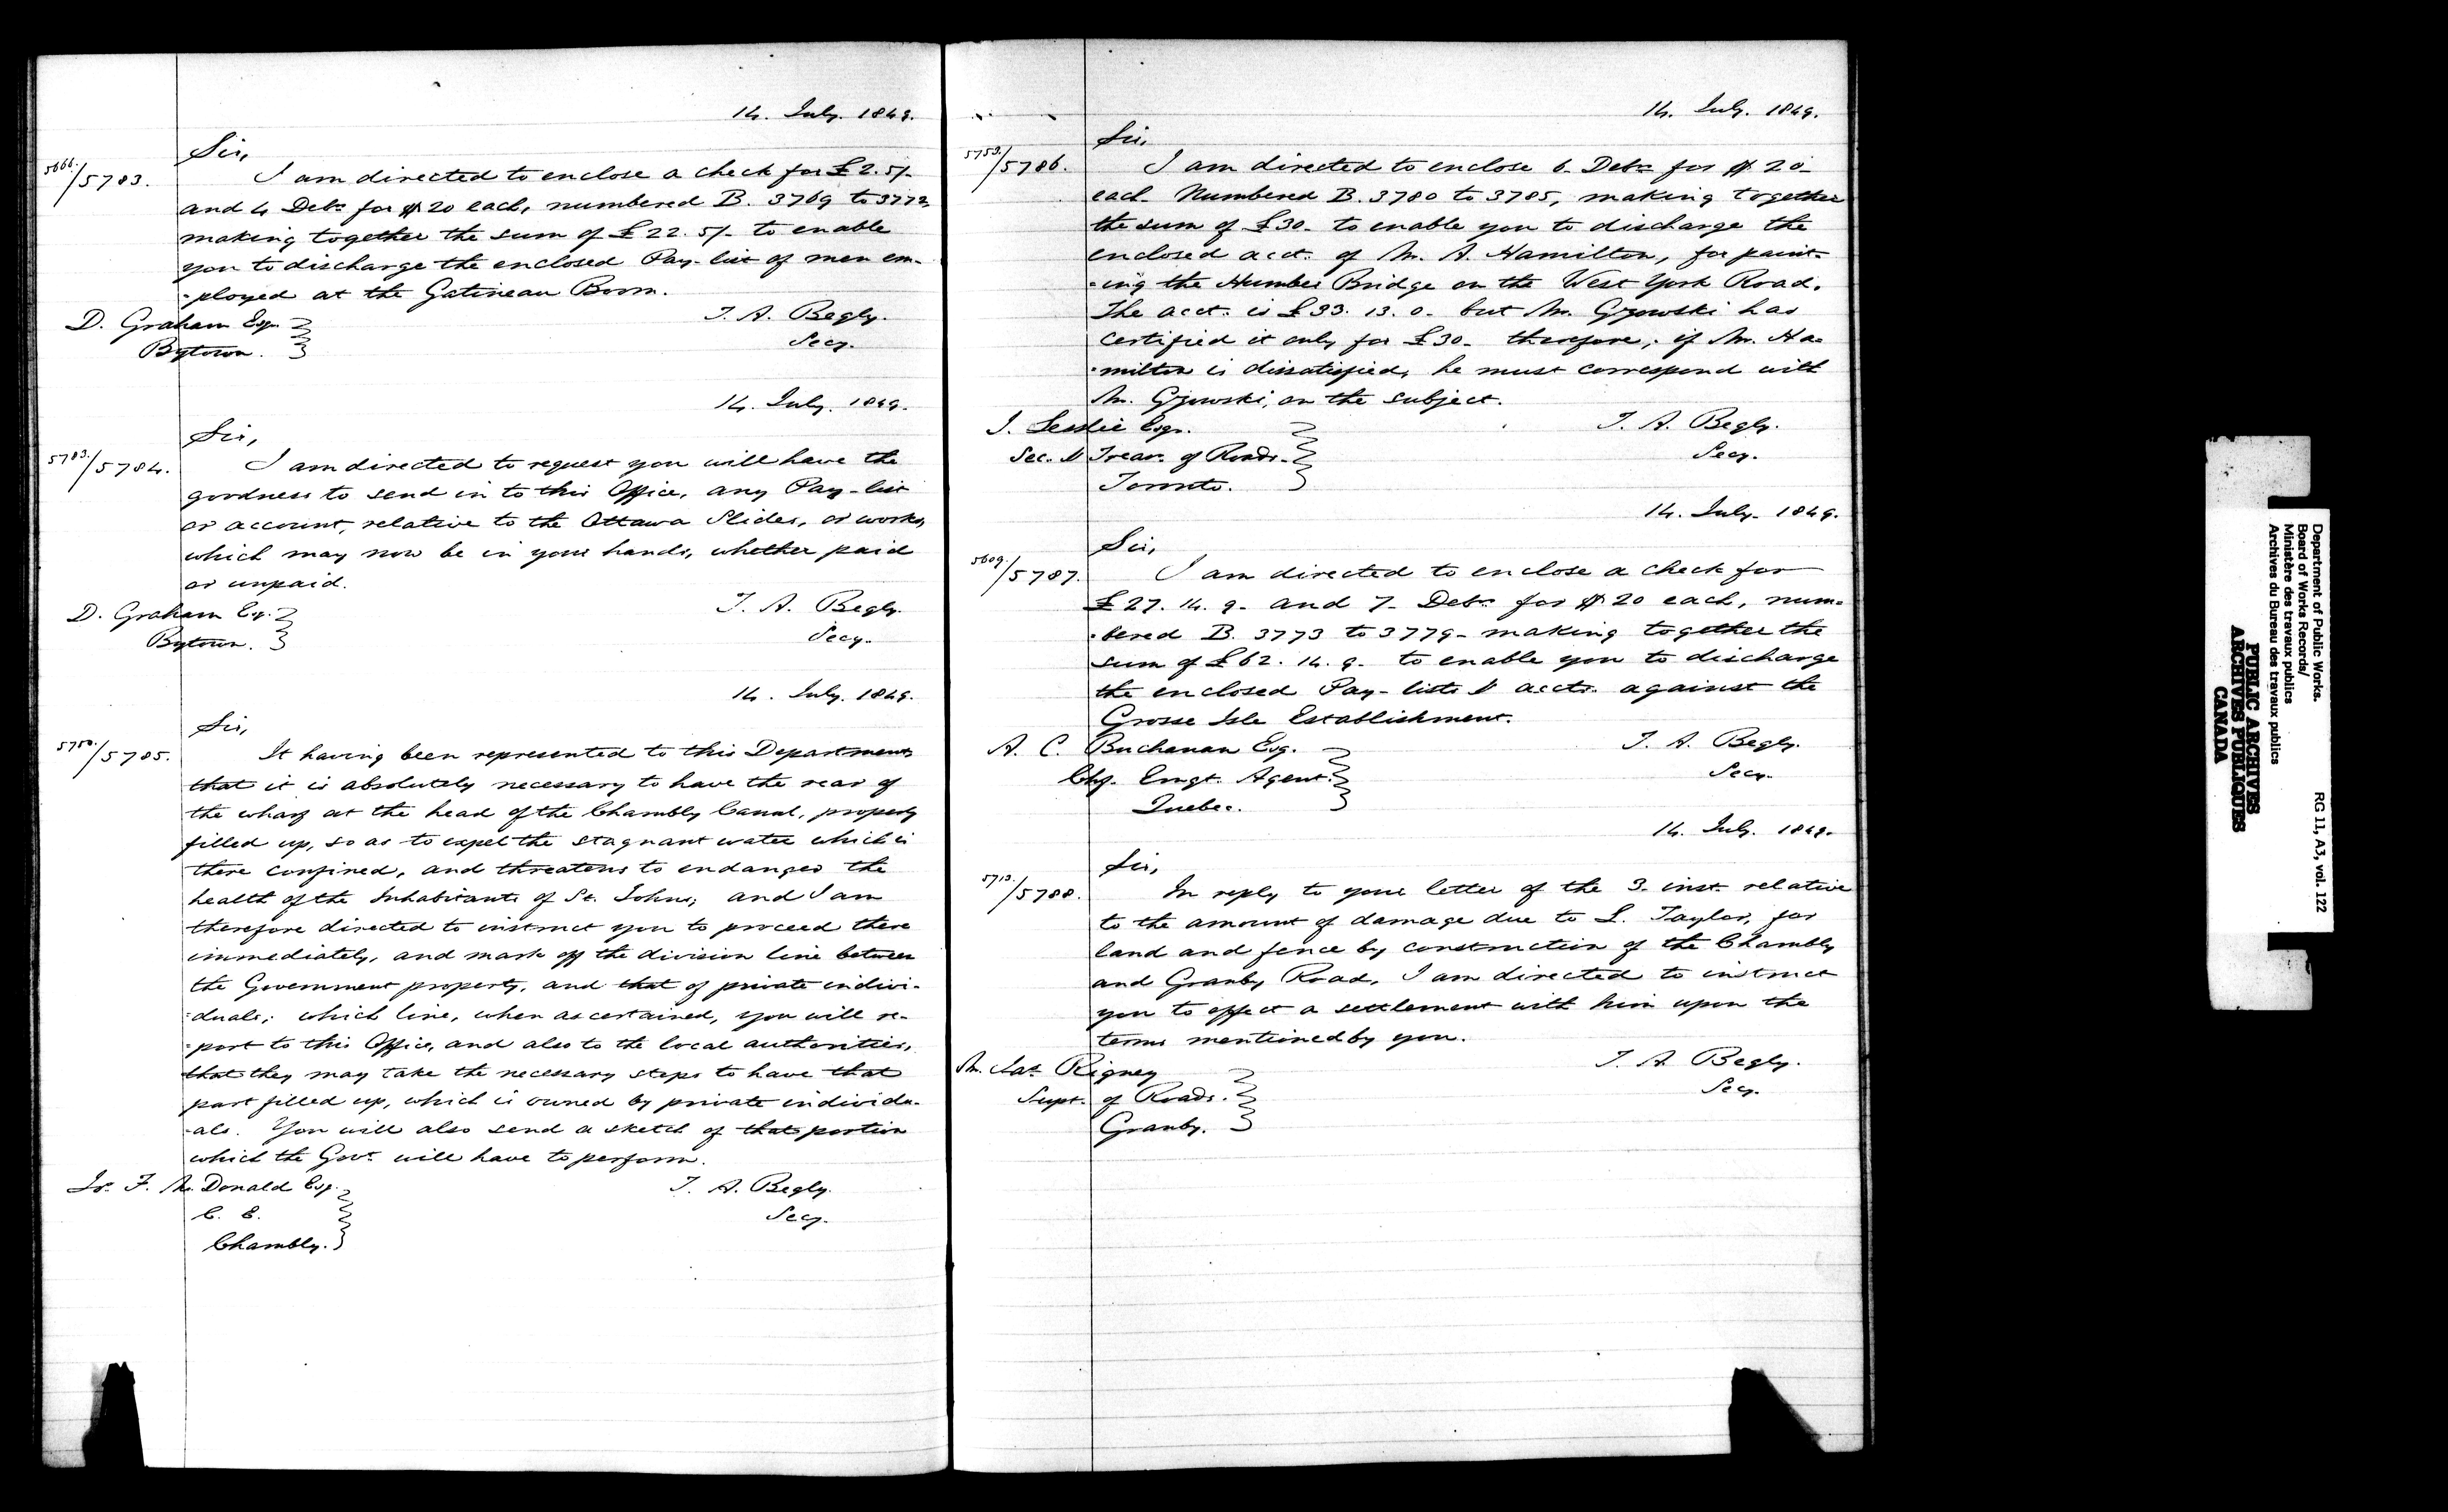 14. July. 1849.
Sir,
5666./5783.
I am directed to enclose a check for £2.5/-
and 4 Debs for $20 each, numbered B. 3769 to 3772
making together the sum of £22.5/- to enable
you to discharge the enclosed Pay-list of men em-
-ployed at the Gatineau Boom.
D. Graham Esq.
Bytown.
T. A. Begly.
Secy.
14. July. 1849.
Sir,
5783./5784.
I am directed to request you will have the
goodness to send in to this Office, any Pay-list
or account, relative to the Ottawa Slides, or works,
which may now be in your hands, whether paid
or unpaid.
D. Graham Esq.
Bytown.
T. A. Begly.
Secy.
14. July. 1849.
Sir,
5750./5785.
It having been represented to this Department
that it is absolutely necessary to have the rear of
the wharf at the head of the Chambly Canal, properly
filled up, so as to expel the stagnant water which is
there confined, and threatens to endanger the
health of the Inhabitants of St. Johns; and I am
therefore directed to instruct you to proceed there
immediately, and mark off the division line between
the Government property, and that of private indivi-
-duals; which line, when ascertained, you will re-
-port to this Office, and also to the local authorities,
that they may take the necessary steps to have that
part filled up, which is owned by private individu-
-als. You will also send a sketch of that portion
which the Govt. will have to perform.
F. McDonald Esq.
C. E.
Chambly.
T. A. Begly.
Secy.
14. July. 1849.
Sir,
5753./5786.
I am directed to enclose 6 Debs for $20-
each Numbered B. 3780 to 3785, making together
the sum of £30- to enable you to discharge the
enclosed acct. of Mr. A. Hamilton, for paint-
-ing the Humber Bridge on the West York Road.
The acct. is £33. 13. 0- but Mr. Gzowski has
certified it only for £30- therefore, if Mr. Ha-
-milton is dissatisfied, he must correspond with
Mr. Gzowski, on the subject.
J. Leslie Esqr.
Sec. & Treas. of Roads.
Toronto.
T. A. Begly.
Secy.
14. July. 1849.
Sir,
5609./5787.
I am directed to enclose a check for
£27. 14. 9- and 7- Debs for $20 each, num-
-bered B. 3773 to 3779- making together the
sum of £62. 14. 9- to enable you to discharge
the enclosed Pay-lists & accts. against the
Grosse Isle Establishment.
A. C. Buchanan Esq.
Chf. Emgt. Agent.
Quebec.
T. A. Begly.
Secy.
14. July. 1849.
Sir,
5713./5788.
In reply to your letter of the 3. inst. relative
to the amount of damage due to L. Taylor, for
land and fence by construction of the Chambly
and Granby Road, I am directed to instruct
you to effect a settlement with him upon the
terms mentioned by you.
Mr. Jas. Rigney
Supt. of Roads.
Granby.
T. A. Begly.
Secy.
Department of Public Works.
Board of Works Records/
Ministère des travaux publics
Archives du Bureau des travaux publics
RG 11, A3, vol. 122
PUBLIC ARCHIVES
ARCHIVES PUBLIQUES
CANADA